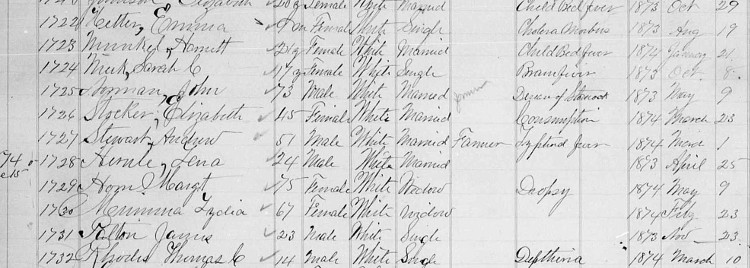 Elizabeth Female White Married Child Bed fever 1873 Oct 29
1722 Hetter, Emma Female White Single Cholera Morbus 1873 Aug 19
1723 21 Female White Married Child Bed fever 1874 January 21
1724 Sarah C 17 Female White Single Brain fever 1873 Oct 8
1725 Norman John 73 Male White Married Disease of Stomach 1873 May 9
1726 Stocker, Elizabeth 45 Female White Married Consumption 1874 March 23
1727 Stewart, Andrew 51 Male White Married Farmer Typhoid fever 1874 March 1
1728 Lena 24 Male White Married 1873 April 25
1729 Horn, Margt 75 Female White Widow Dropsy 1874 May 9
1730 Mumma Lydia 67 Female White Widow 1874 Feby 23
1731 James 23 Male White Single 1873 Nov 23
1732 Rhodes Thomas C 14 Male White Single Diptheria 1874 March 10